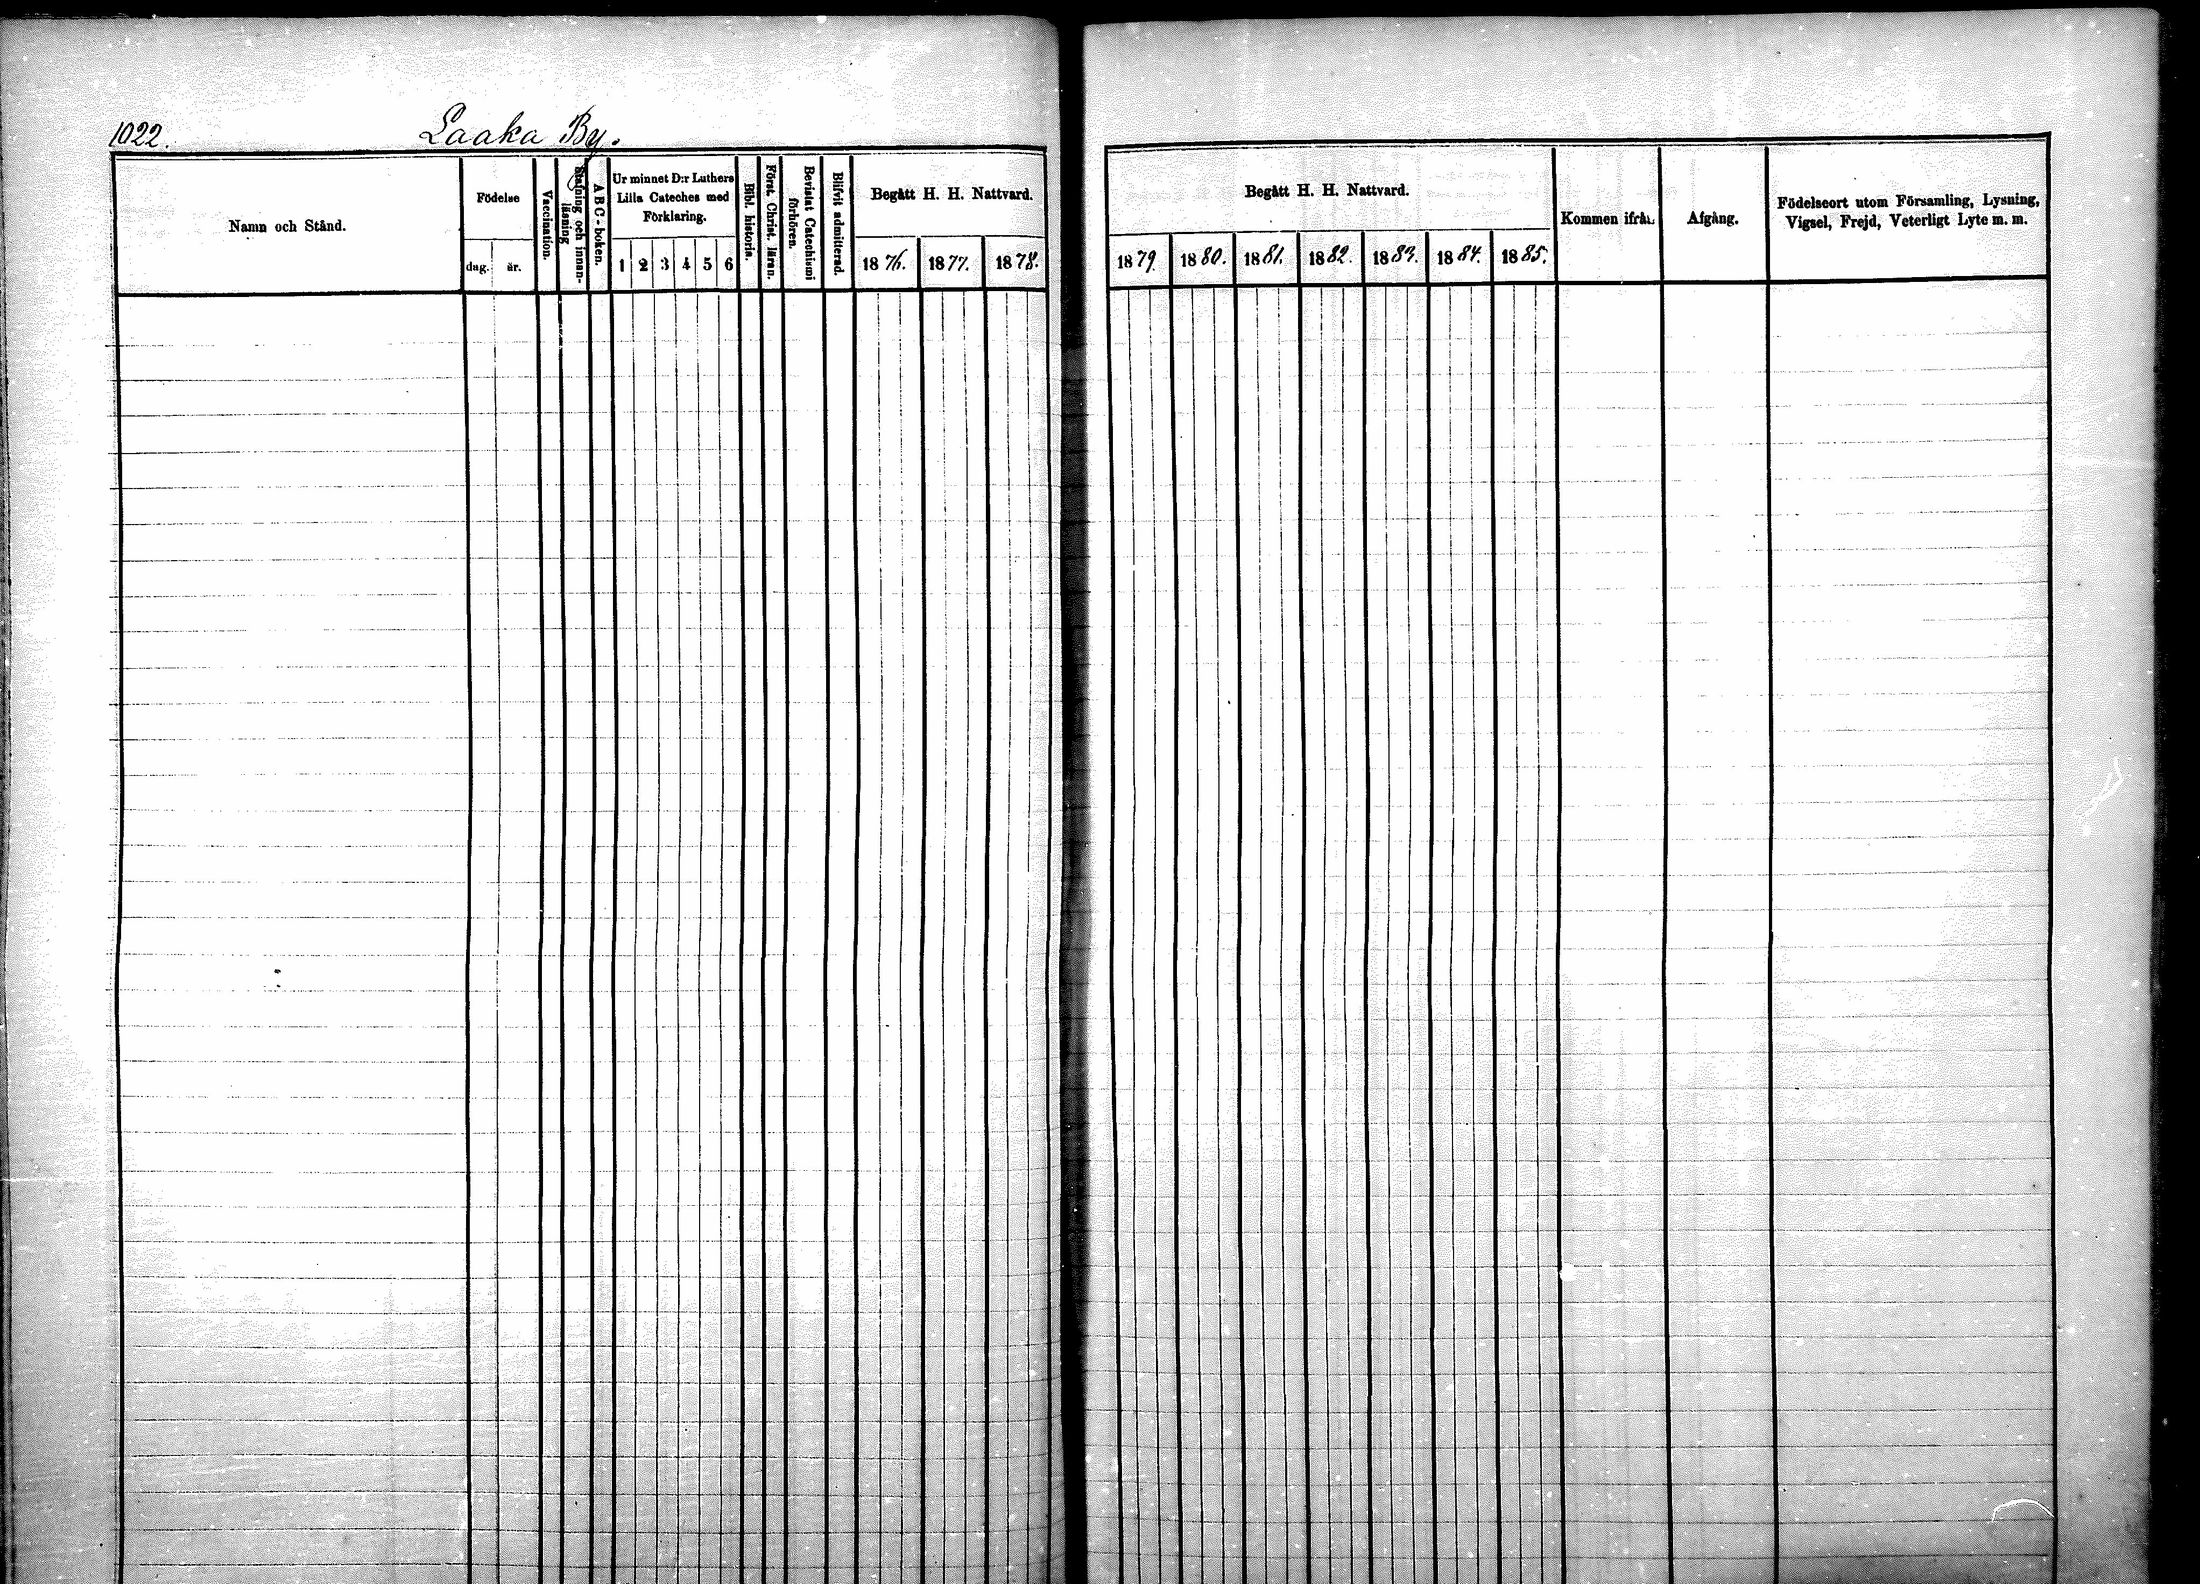 1022.
Laaka By.
Namn och Stånd.
Födelse
dag.
år.
Vaccination.
Stafning och innan-
läsning
ABC-boken.
Ur minnet D:r Luthers
Lilla Cateches med
Förklaring.
1 2 3 4 5 6
Bibl. historia.
Först. Christ. läran.
Bevistat Catechismi
förhören.
Blifvit admitterad.
Begått H. H. Nattvard.
1876. 1877. 1878.
Begått H. H. Nattvard.
1879. 1880. 1881. 1882. 1883. 1884. 1885.
Kommen ifrån
Afgång.
Födelseort utom Församling, Lysning,
Vigsel, Frejd, Veterligt Lyte m. m.